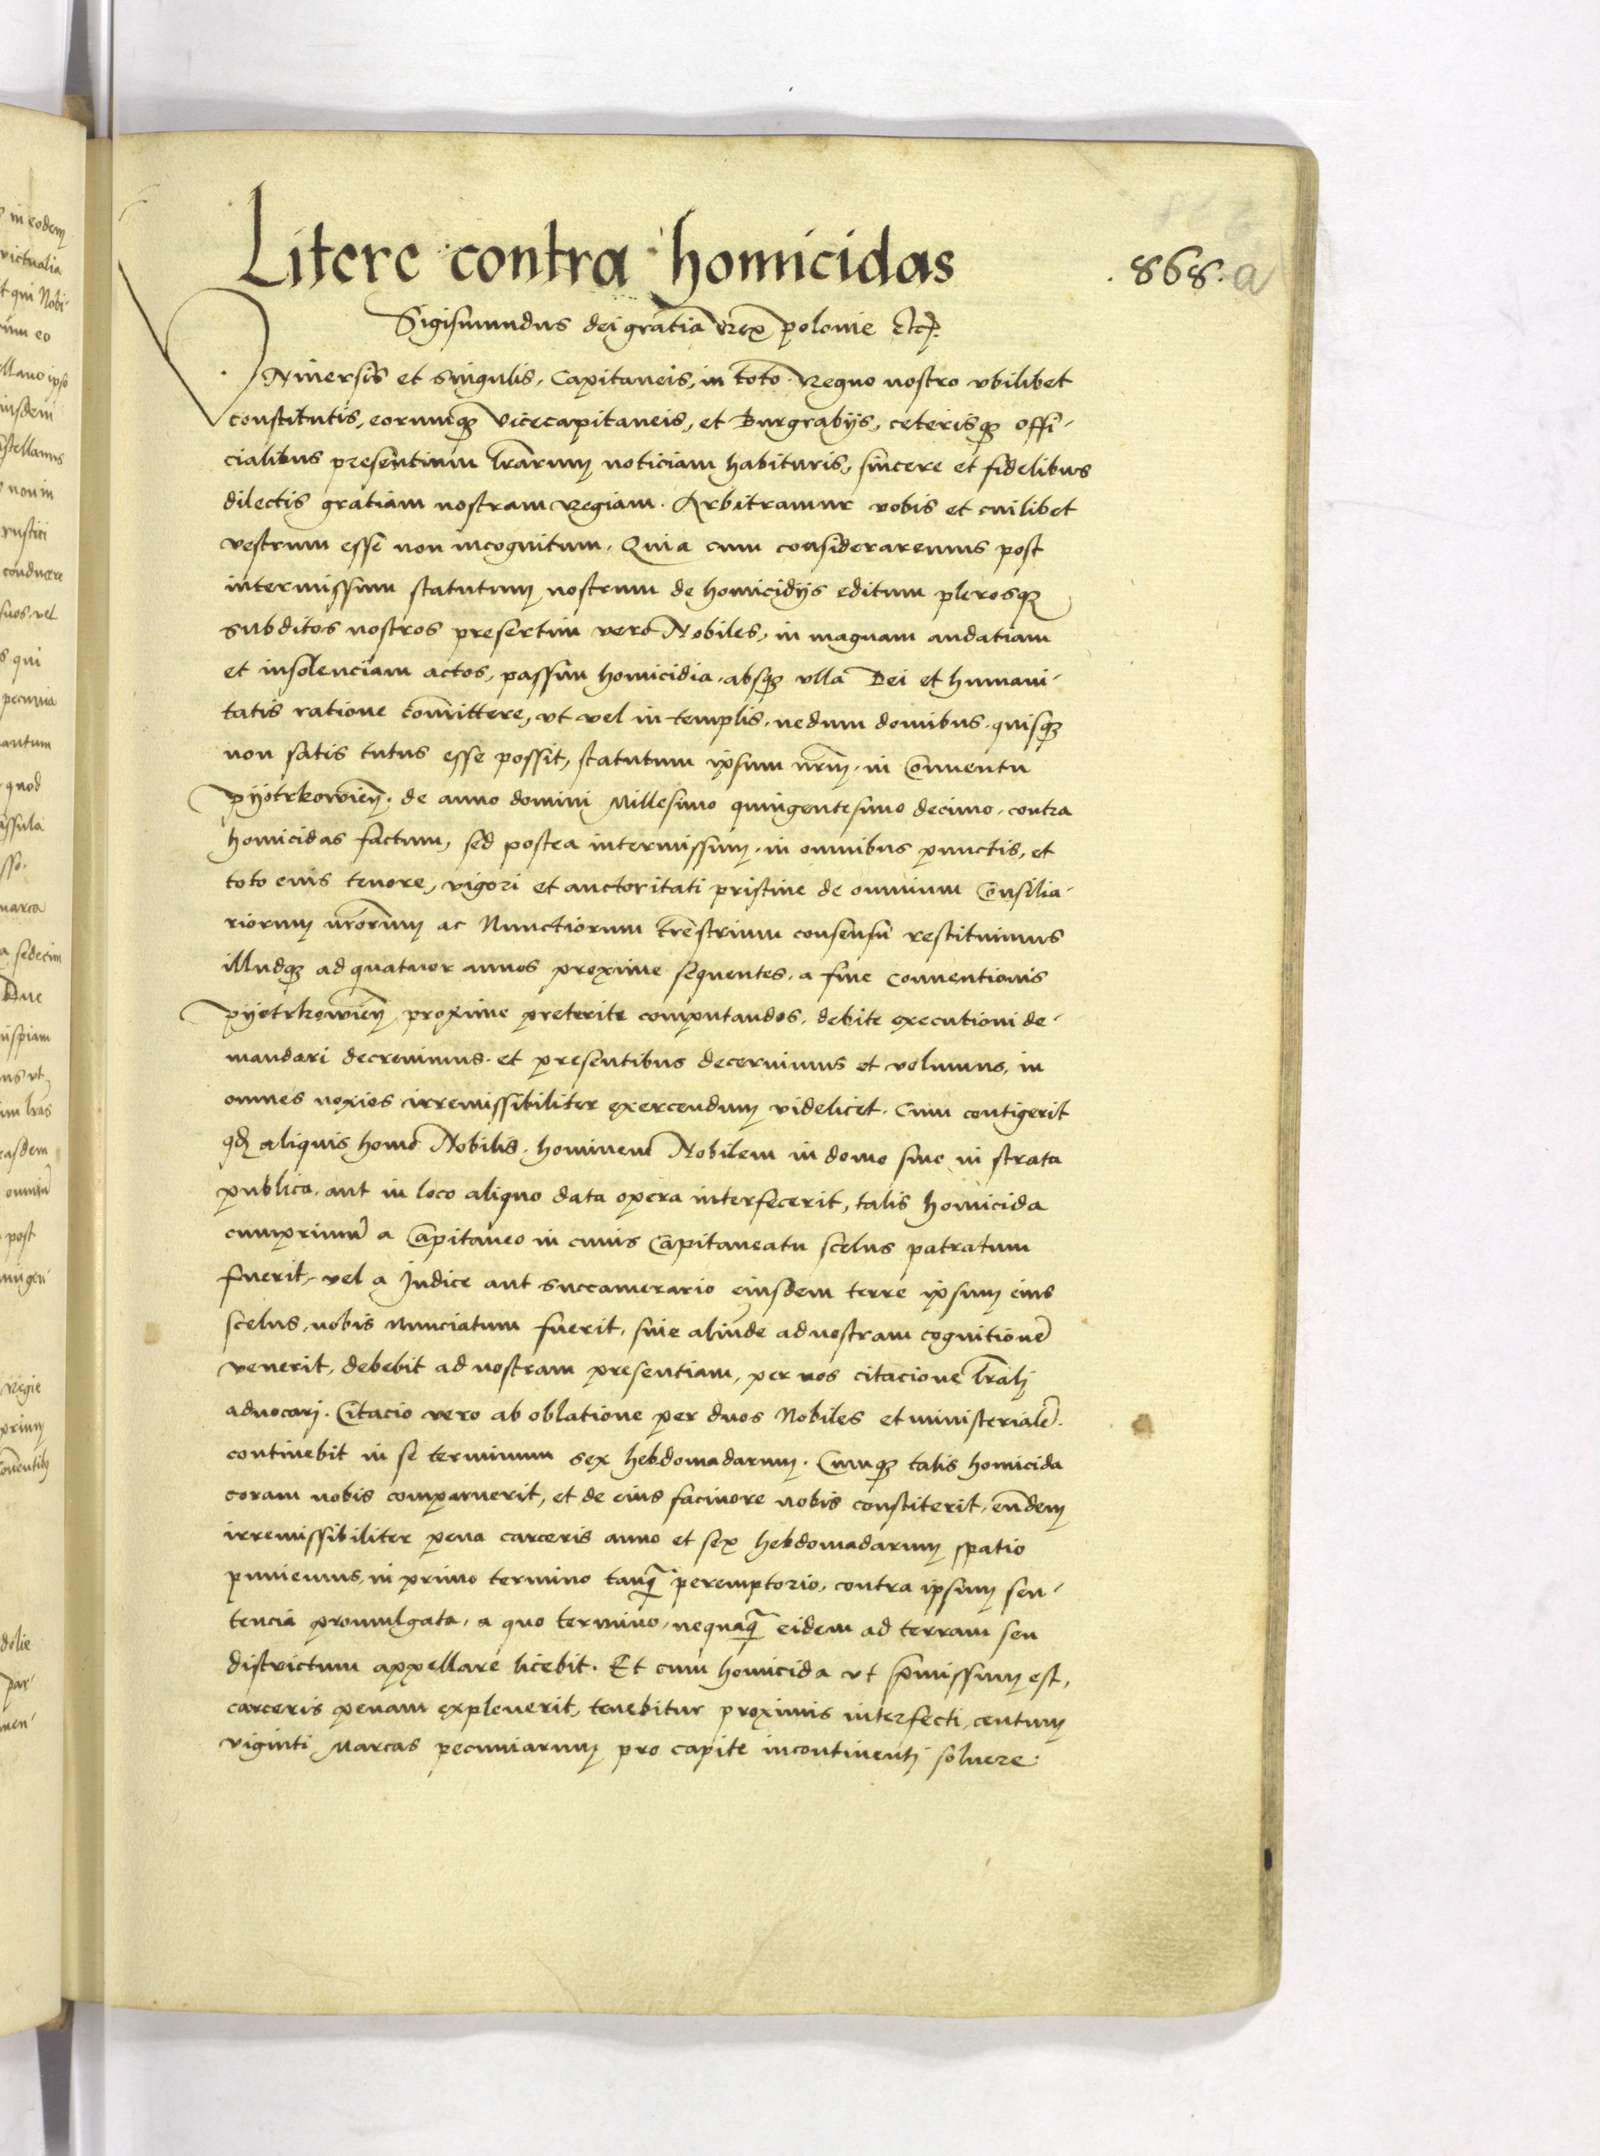 Litere contra homicidas
.868. a
Sigismundus dei gratia Rex polonie etc.
Vniuersis et singulis, Capitaneis, in toto Regno nostro vbilibet
constitutis, eorumq3 vicecapitaneis, et Burgrabijs, ceterisq3 offi-
cialibus presentium lrarum noticiam habituris, sincere et fidelibus
dilectis gratiam nostram Regiam. Arbitramur vobis et cuilibet
vestrum esse non incognitum, Quia cum consideraremus post
intermissum statutum nostrum de homicidijs editum plerosq3
subditos nostros presertim vero Nobiles, in magnam audatiam
et insolenciam actos, passim homicidia absq3 vlla Dei et humani-
tatis ratione comittere, vt vel in templis, nedum domibus quisq3
non satis tutus esse possit, statutum ipsum nrm in Conuentu
pyotrkowien. de anno domini Millesimo quingentesimo decimo contra
homicidas factum, sed postea intermissum, in omnibus punctis, et
toto eius tenore, vigori et auctoritati pristine de omnium Consilia-
riorum nrorum ac Nunctiorum trestrium consensu restituimus
illudq3 ad quatuor annos proxime sequentes, a fine conuentionis
pyotrkowien proxime preterite computandos, debite executioni de-
mandari decreuimus et presentibus decernimus et volumus, in
omnes noxios irremissibiliter exercendum videlicet. Cum contigerit
qd aliquis homo Nobilis, hominem Nobilem in domo siue in strata
publica, aut in loco aliquo data opera interfecerit, talis homicida
cumprimum a Capitaneo in cuius Capitaneatu scelus patratum
fuerit, vel a Judice aut Succamerario eiusdem terre ipsum eius
scelus, nobis nunciatum fuerit, siue aliunde ad nostram cognitione
venerit, debebit ad nostram presentiam, per nos citacione lrali
aduocari. Citacio vero ab oblatione per duos Nobiles et ministeriale
continebit in se terminum sex hebdomadarum. Cumq3 talis homicida
coram nobis comparuerit, et de eius facinore nobis constiterit, eundem
irremissibiliter pena carceris anno et sex hebdomadarum spatio
puniemus, in primo termino tanq peremptorio, contra ipsum sen-
tencia promulgata, a quo termino, nequaq eidem ad terram seu
districtum appellare licebit. Et cum homicida vt pmissum est,
carceris penam expleuerit, tenebitur proximis interfecti, centum
viginti Marcas pecuniarum pro capite incontinenti soluere.